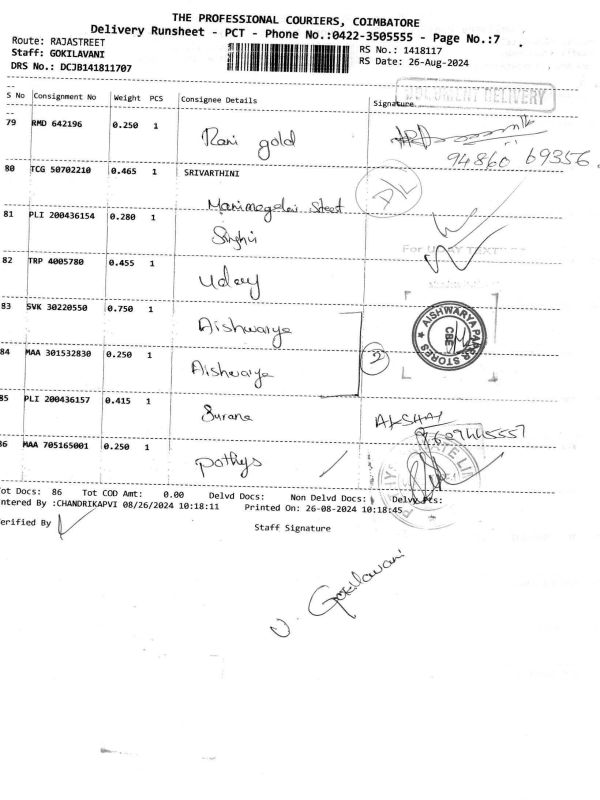 THE PROFESSIONAL COURIERS, COIMBATORE
Delivery Runsheet - PCT - Phone No.:0422-3505555 - Page No.:7
Route: RAJASTREET
Staff: GOKILAVANI
DRS No.: DCJB141811707
RS No.: 1418117
RS Date: 26-Aug-2024
DOCUMENT DELIVERY
S No Consignment No Weight PCS Consignee Details Signature
79 RMD 642196 0.250 1 Rani gold
94860 69356
80 TCG 50702210 0.465 1 SRIVARTHINI
D/L
Manimegalai Street
81 PLI 200436154 0.280 1 Singhvi
For UDAY TEXT
82 TRP 4005780 0.455 1 Uday
83 SVK 30220550 0.750 1 Aishwarya
AISHWARYA PAPER STORES
CBE
84 MAA 301532830 0.250 1 Aishwarya
2
85 PLI 200436157 0.415 1 Surana
AKSHAY
86 MAA 705165001 0.250 1 pothys
Tot Docs: 86 Tot COD Amt: 0.00 Delvd Docs: Non Delvd Docs: Delvy Pcs:
ntered By :CHANDRIKAPVI 08/26/2024 10:18:11 Printed On: 26-08-2024 10:18:45
erified By
Staff Signature
V. Gokilavani